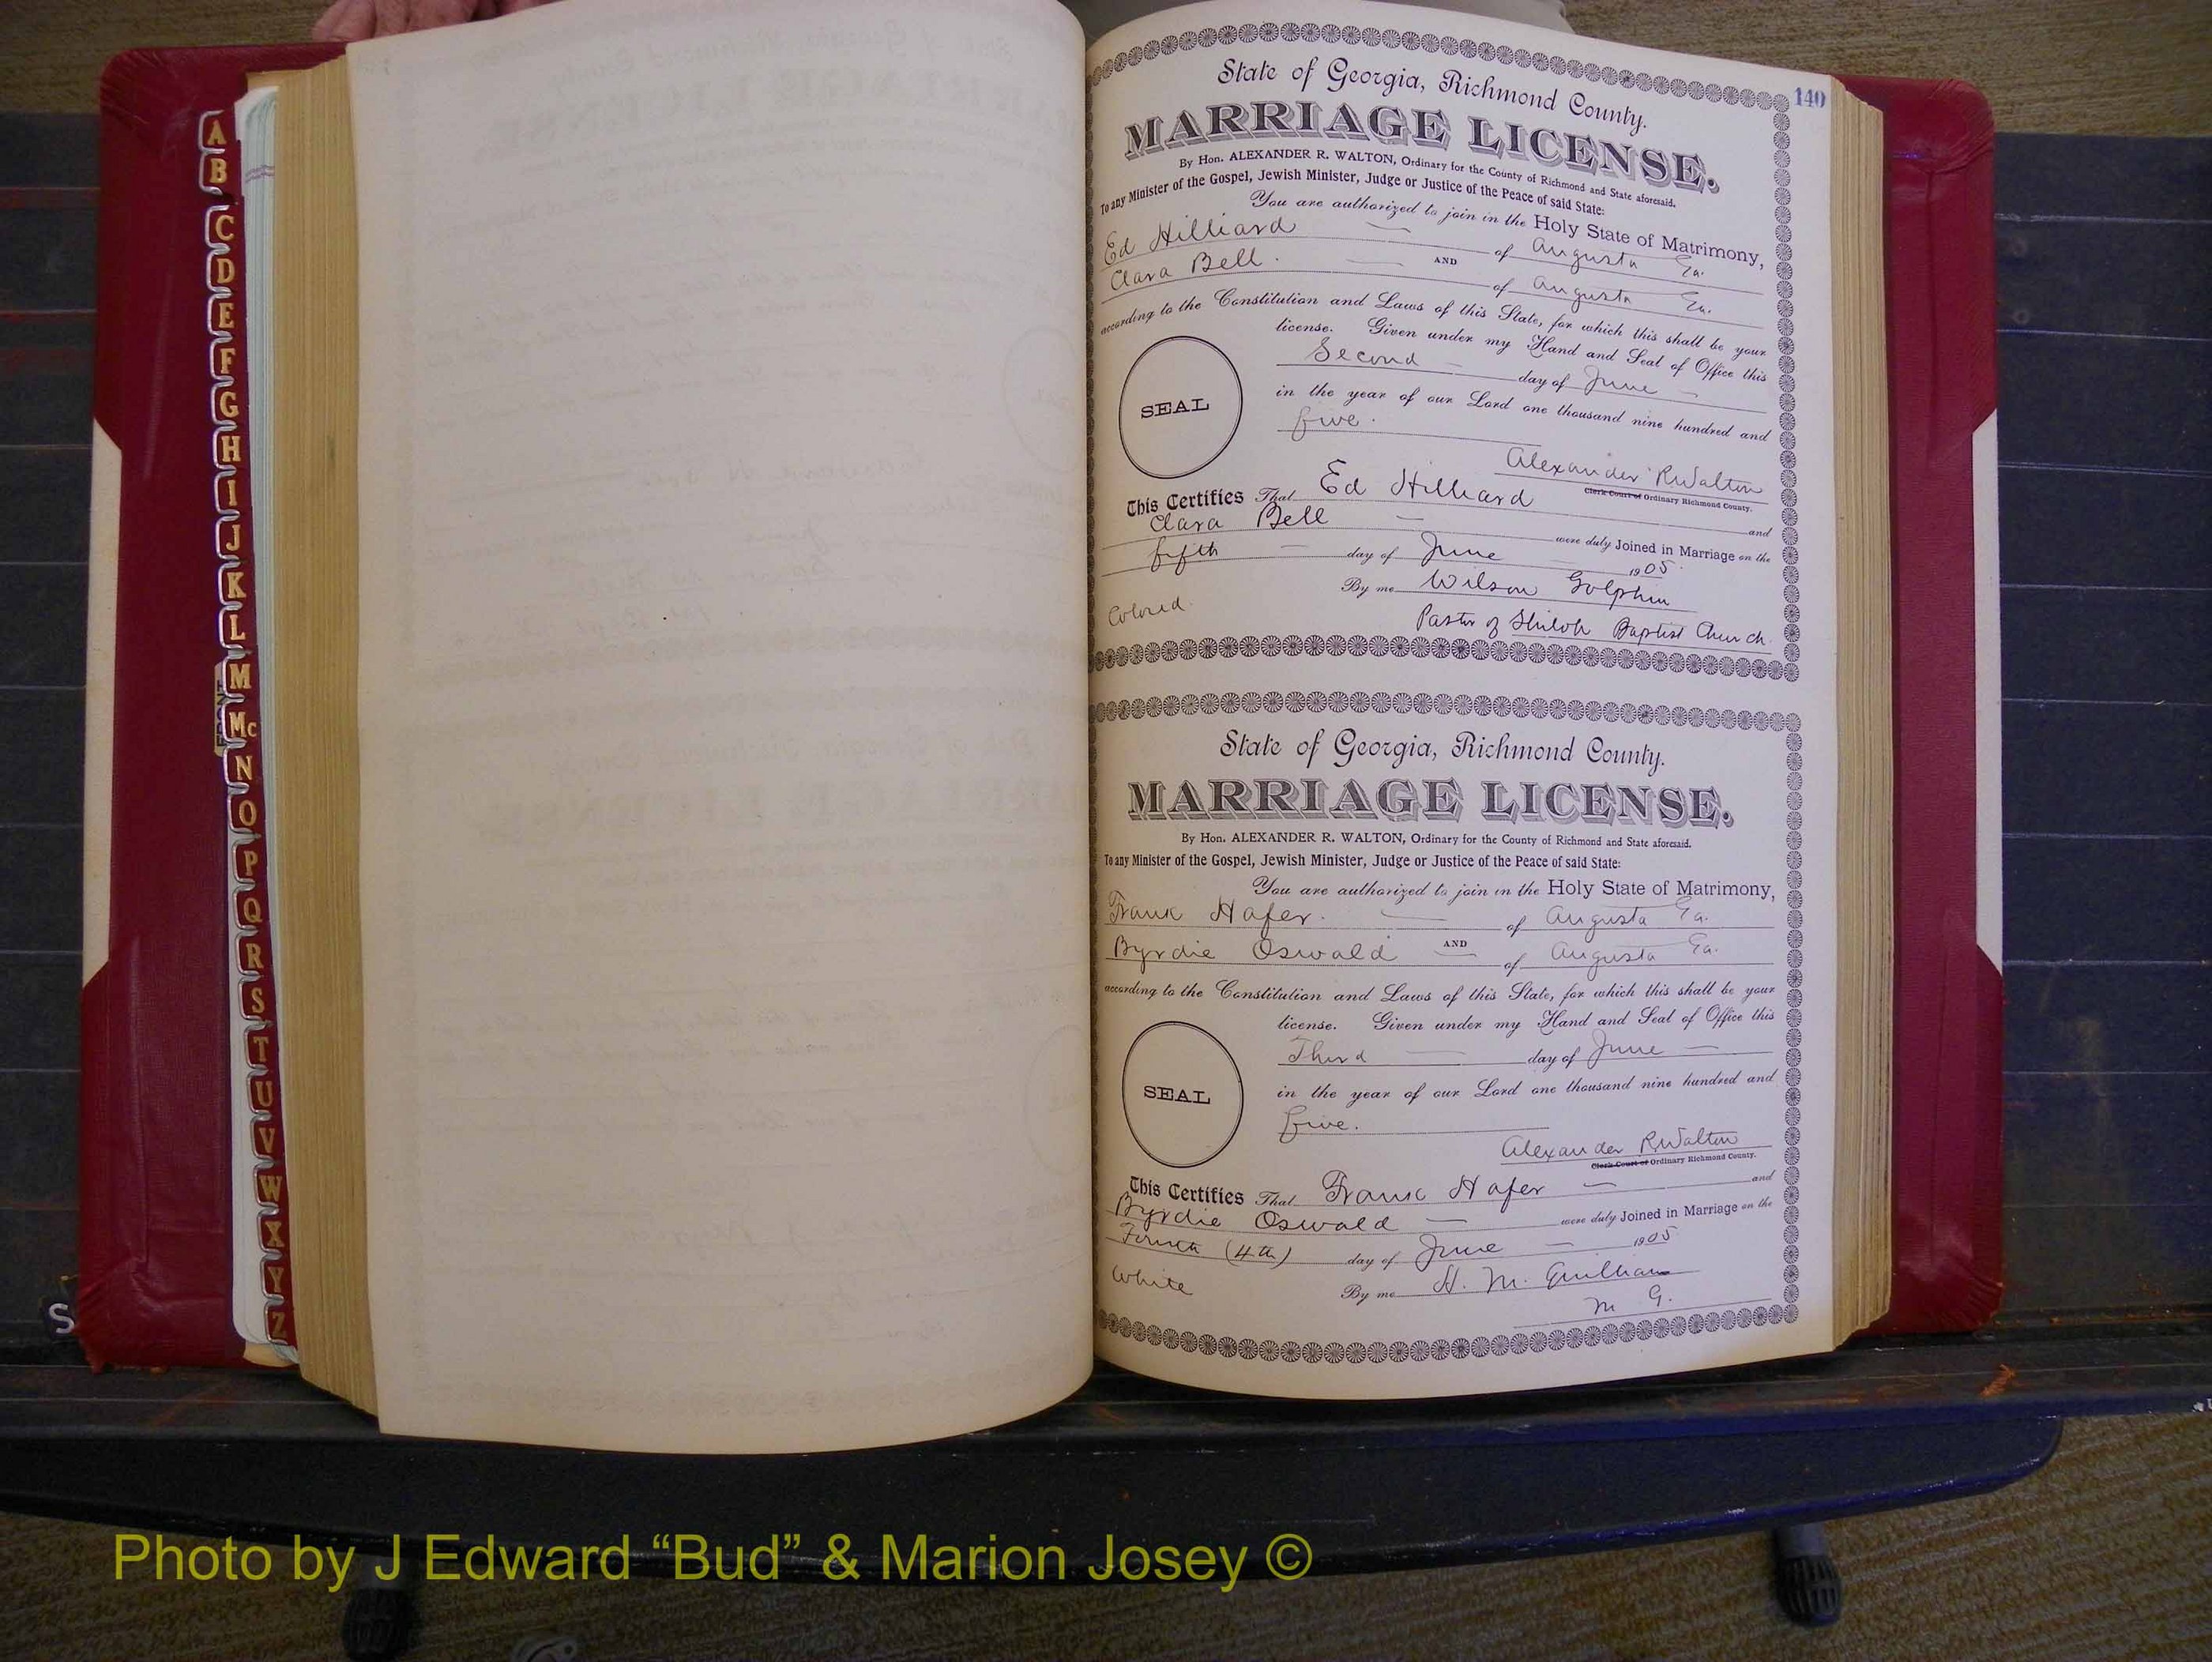 A
B
C
D
E
F
G
H
I
J
K
L
M
Mc
N
O
P
Q
R
S
T
U
V
W
X
Y
Z
140
State of Georgia, Richmond County.
MARRIAGE LICENSE.
By Hon. ALEXANDER R. WALTON, Ordinary for the County of Richmond and State aforesaid.
To any Minister of the Gospel, Jewish Minister, Judge or Justice of the Peace of said State:
You are authorized to join in the Holy State of Matrimony,
Ed Hilliard of Augusta Ga.
AND
Clara Bell. of Augusta Ga.
according to the Constitution and Laws of this State, for which this shall be your
license. Given under my Hand and Seal of Office this
Second day of June
in the year of our Lord one thousand nine hundred and
five.
SEAL
Alexander R Walton
Clerk Court of Ordinary Richmond County.
This Certifies That Ed Hilliard and
Clara Bell were duly Joined in Marriage on the
fifth day of June 1905
By me Wilson Golphin
Colored.
Pastor of Shiloh Baptist Church.
State of Georgia, Richmond County.
MARRIAGE LICENSE.
By Hon. ALEXANDER R. WALTON, Ordinary for the County of Richmond and State aforesaid.
To any Minister of the Gospel, Jewish Minister, Judge or Justice of the Peace of said State:
You are authorized to join in the Holy State of Matrimony,
Frank Hafer. of Augusta Ga.
AND
Byrdie Oswald of Augusta Ga.
according to the Constitution and Laws of this State, for which this shall be your
license. Given under my Hand and Seal of Office this
Third day of June
in the year of our Lord one thousand nine hundred and
five.
SEAL
Alexander R Walton
Clerk Court of Ordinary Richmond County.
This Certifies That Frank Hafer and
Byrdie Oswald were duly Joined in Marriage on the
Fourth (4th) day of June 1905
White
By me H. M. Quillian
M G.
Photo by J Edward “Bud” & Marion Josey ©